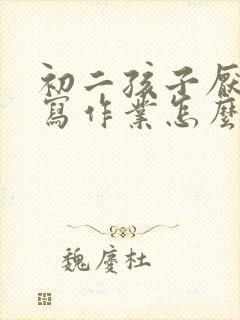 初二孩子
寫作業怎麼
魏慶杜